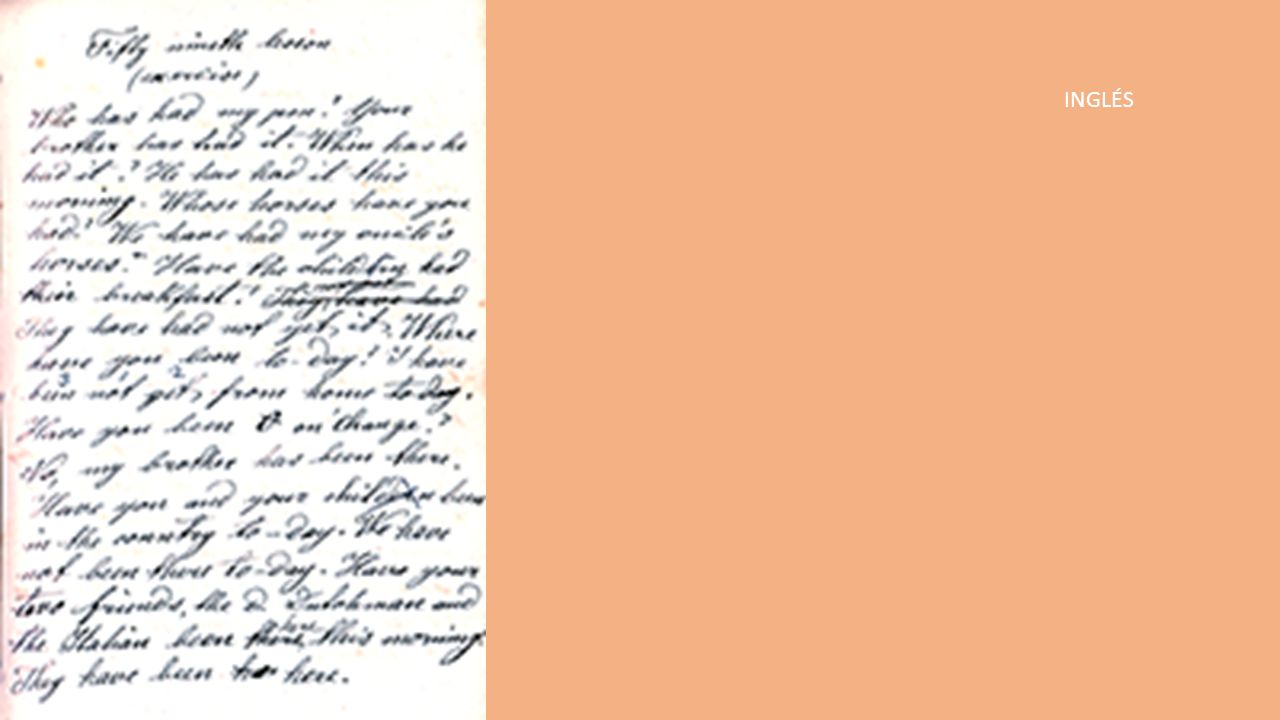 Fifty nineth lesson
(exercise)
Who has had my pen? Your
brother has had it. When has he
had it? He has had it this
morning. Whose horses have you
had? We have had my uncle's
horses. Have the children had
their breakfast? They have had
They have had not yet it. Where
have you been to-day? I have
been not yet from home to day.
Have you been on 'Change?
No, my brother has been there.
Have you and your children been
in the country to-day. We have
not been there to-day. Have your
two friends, the d Dutchman and
the Italian been there here this morning.
They have been here.
INGLÉS